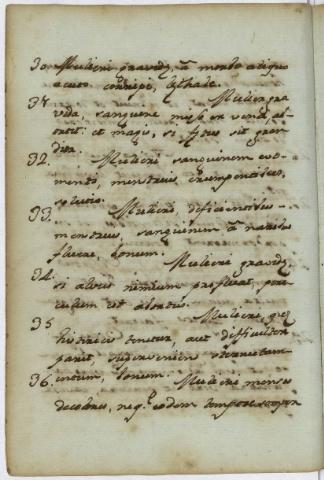 30. Mulieri gravidæ, à morbo aliquo
acuto corripi, lethale.
31. Mulier gra
vida, sanguine misso ex vena, ab
ortit: et magis, si fętus sit gran
dior.
32. Mulieri sanguinem evo-
menti, menstruis erumpentibus,
solutio.
33. Mulieri, deficientibus
menstruis, sanguinem à naribus
fluere, bonum.
34. Mulieri gravidę,
si alvus nimium profluat, peri
culum est abortus.
35 Mulieri, quę
histericis tenetur, aut difficulter
parit, superveniens sternutam
entum, bonum.
36. Mulieri menses
decolores, neq. eodem tempore